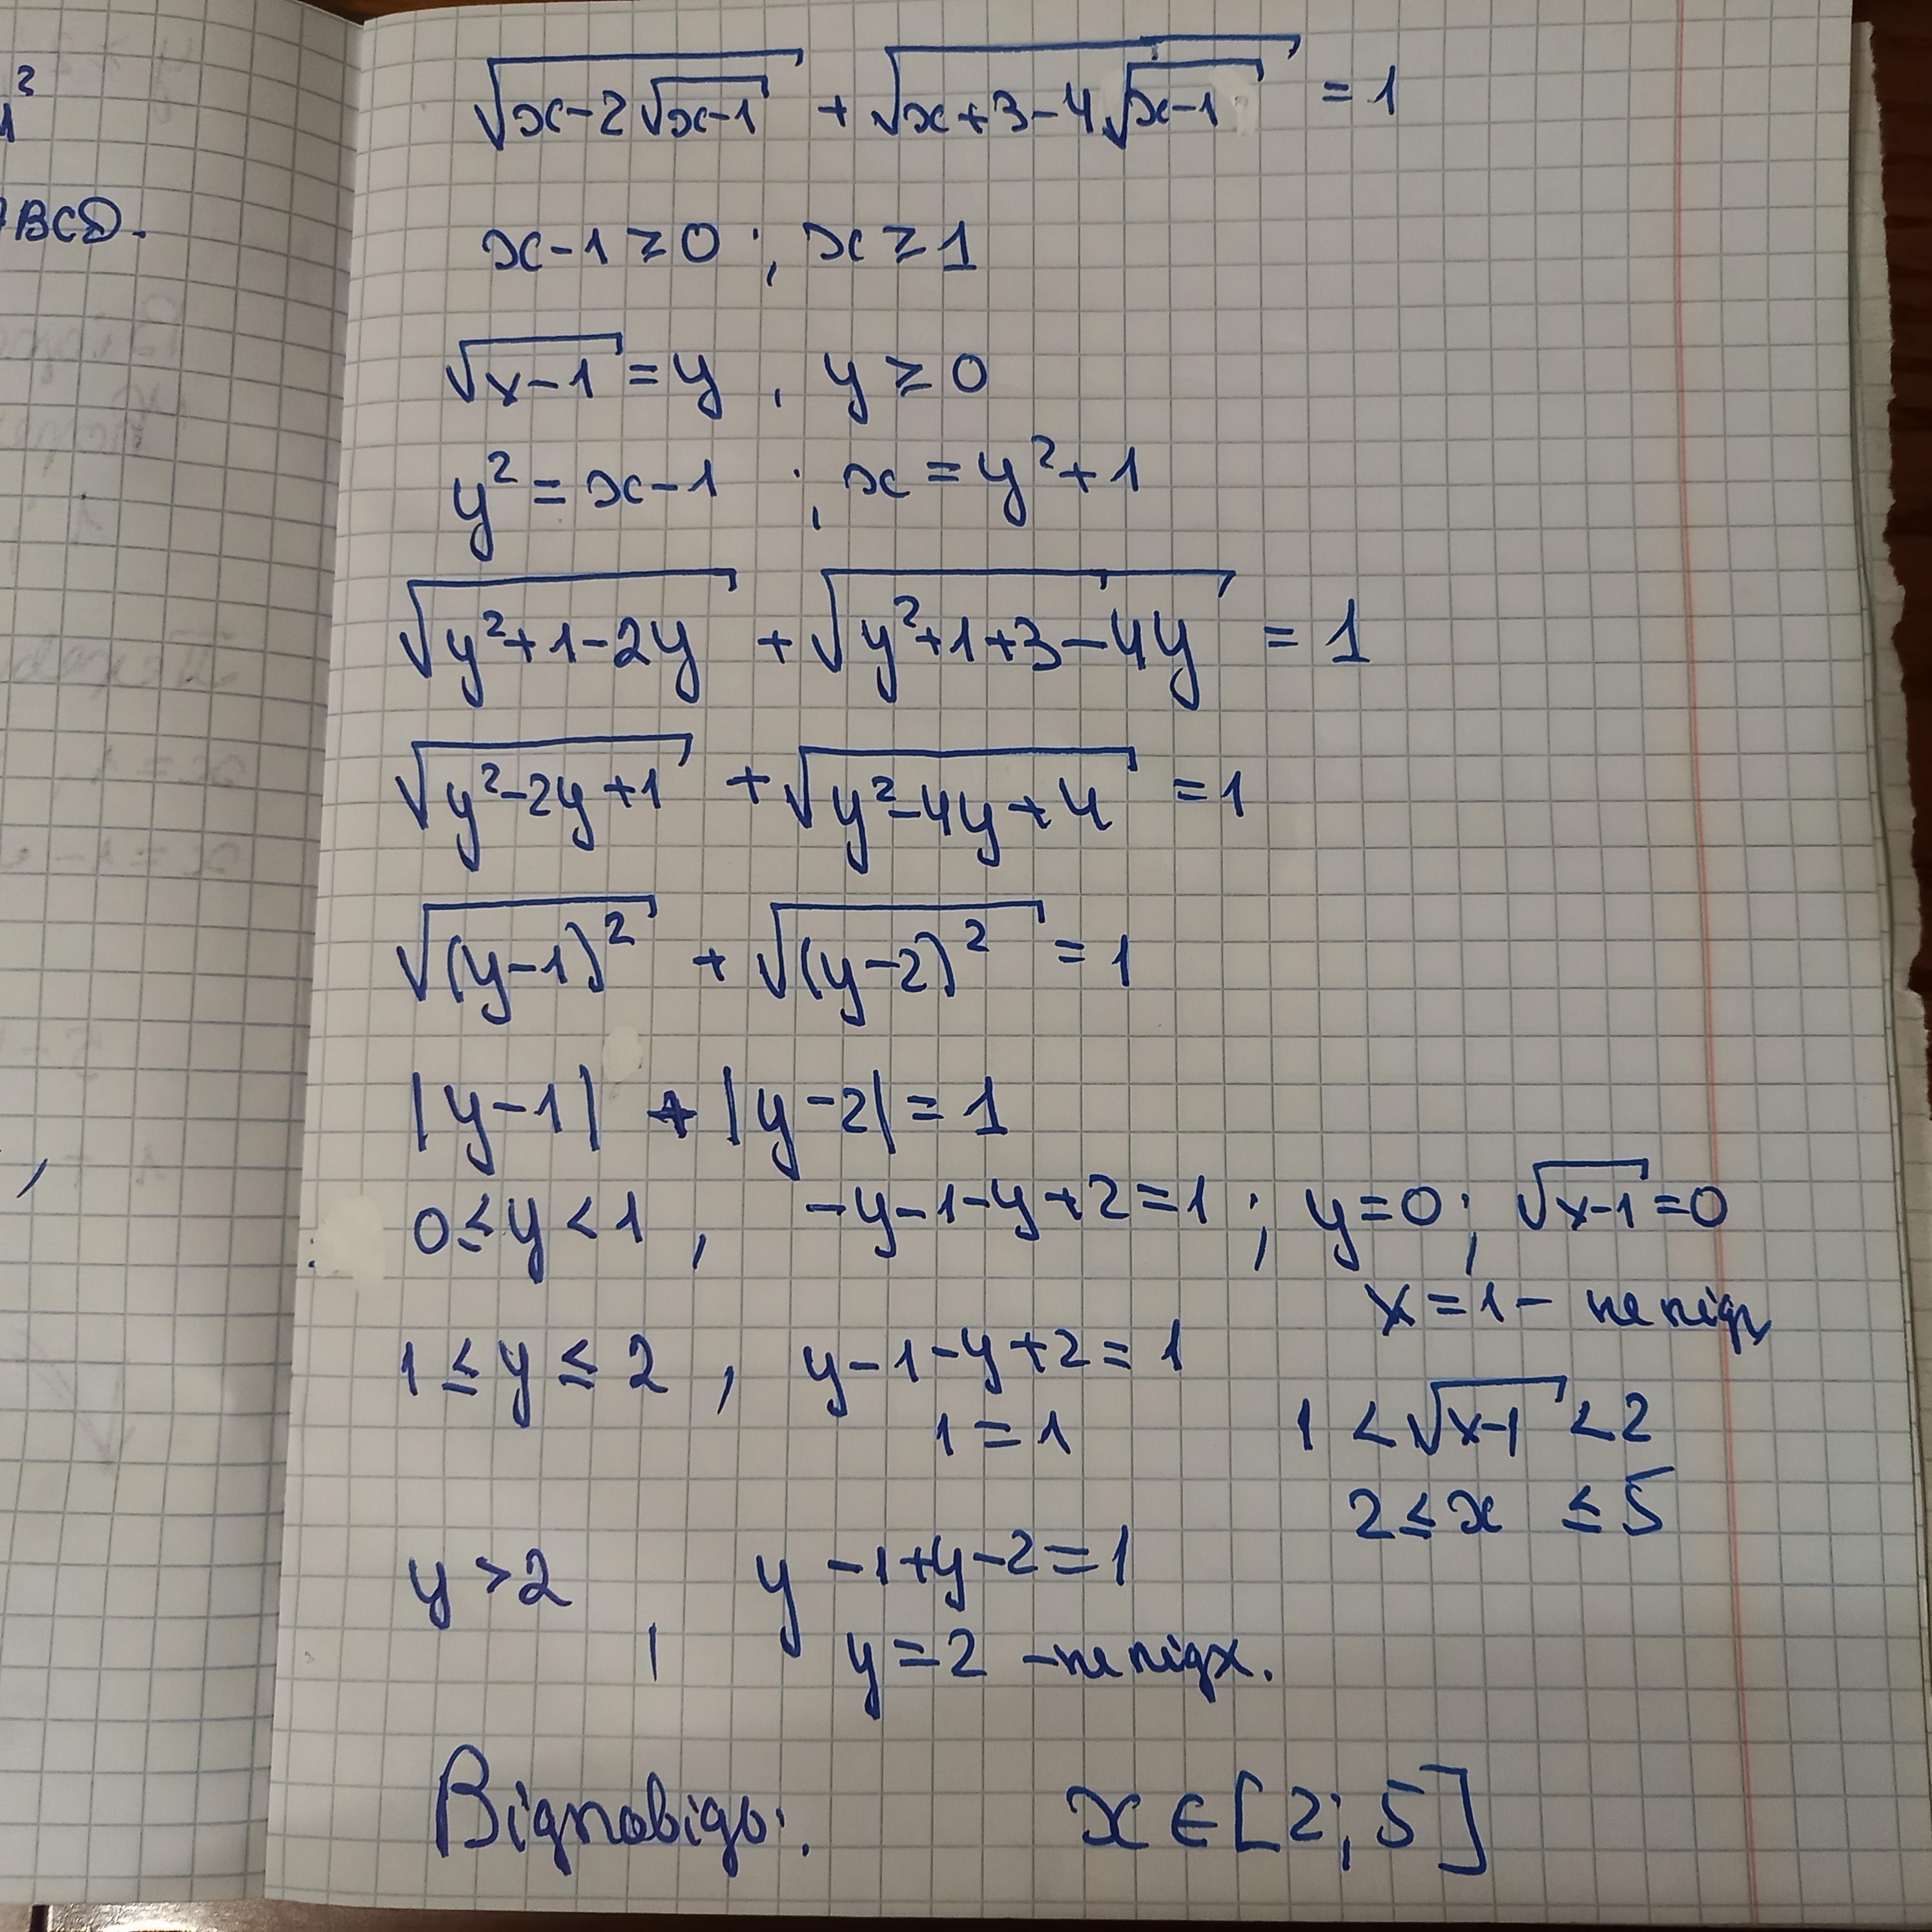 √(x-2√(x-1)) + √(x+3-4√(x-1)) = 1
x-1≥0 ; x≥1
√(x-1) = y , y≥0
y² = x-1 ; x = y²+1
√(y²+1-2y) + √(y²+1+3-4y) = 1
√(y²-2y+1) + √(y²-4y+4) = 1
√((y-1)²) + √((y-2)²) = 1
|y-1| + |y-2| = 1
0≤y<1 , -y-1-y+2=1 ; y=0 ; √(x-1)=0
x=1 - не підх
1≤y≤2 , y-1-y+2=1
1=1
1<√(x-1)<2
2≤x≤5
y>2 , y-1+y-2=1
y=2 - не підх.
Відповідь: x∈[2;5]
BCD.